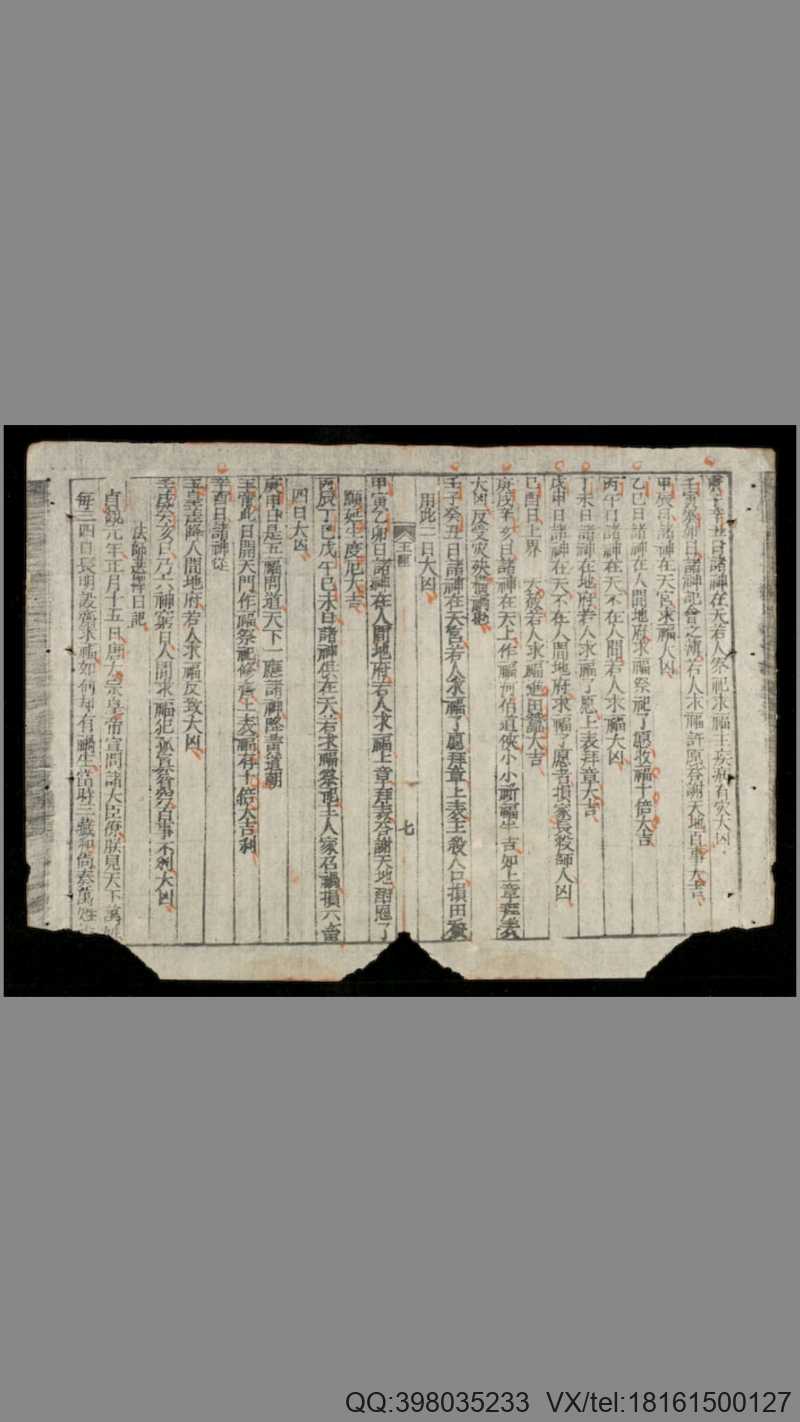 庚子辛丑日諸神在天若人祭祀求福主疾病有灾大凶
壬寅癸卯日諸神記會之簿若人求福許愿答謝天地百事大吉
甲辰日諸神在天宮求福人凶
乙巳日諸神在人間地府求福祭祀了愿收福十倍大吉
丙午日諸神在天不在人間若人求福大凶
丁未日諸神在地府若人求福了愿上表拜章大吉
戊申日諸神在天不在人間地府求福了愿者損家長殺師人凶
己酉日上界 大赦若人求福進田蠶大吉
庚戌辛亥日諸神在天上作福河伯道俠小小祈福半吉如上章拜表
大凶反受灾殃
壬子癸丑日諸神在天宮若人求福了愿拜章上表主殺人口損田蠶
用此二日大凶
七
甲寅乙卯日諸神在人間地府若人求福上章拜表答謝天地詔愿了
願延生度厄大吉
丙辰丁巳戊午巳未日諸神供在天若求福祭祀主人家召禍損六畜
四日大凶
庚申日是五福問道天下一應諸神降黃道朝
玉帝此日開天門作福祭祀修齋上表福有十倍大吉利
辛酉日諸神從
玉皇差降人間地府若人求福反致大凶
壬戌癸亥日乃六神窮日人間求福犯孤寡貧窮百事不利大凶
法師選擇日記
貞觀元年正月十五日唐太宗皇帝宣問諸大臣僚朕見天下萬姓
每三四日長明設齋求福如何却有禍生當時三藏和尚奏萬姓
QQ:398035233 VX/tel:18161500127